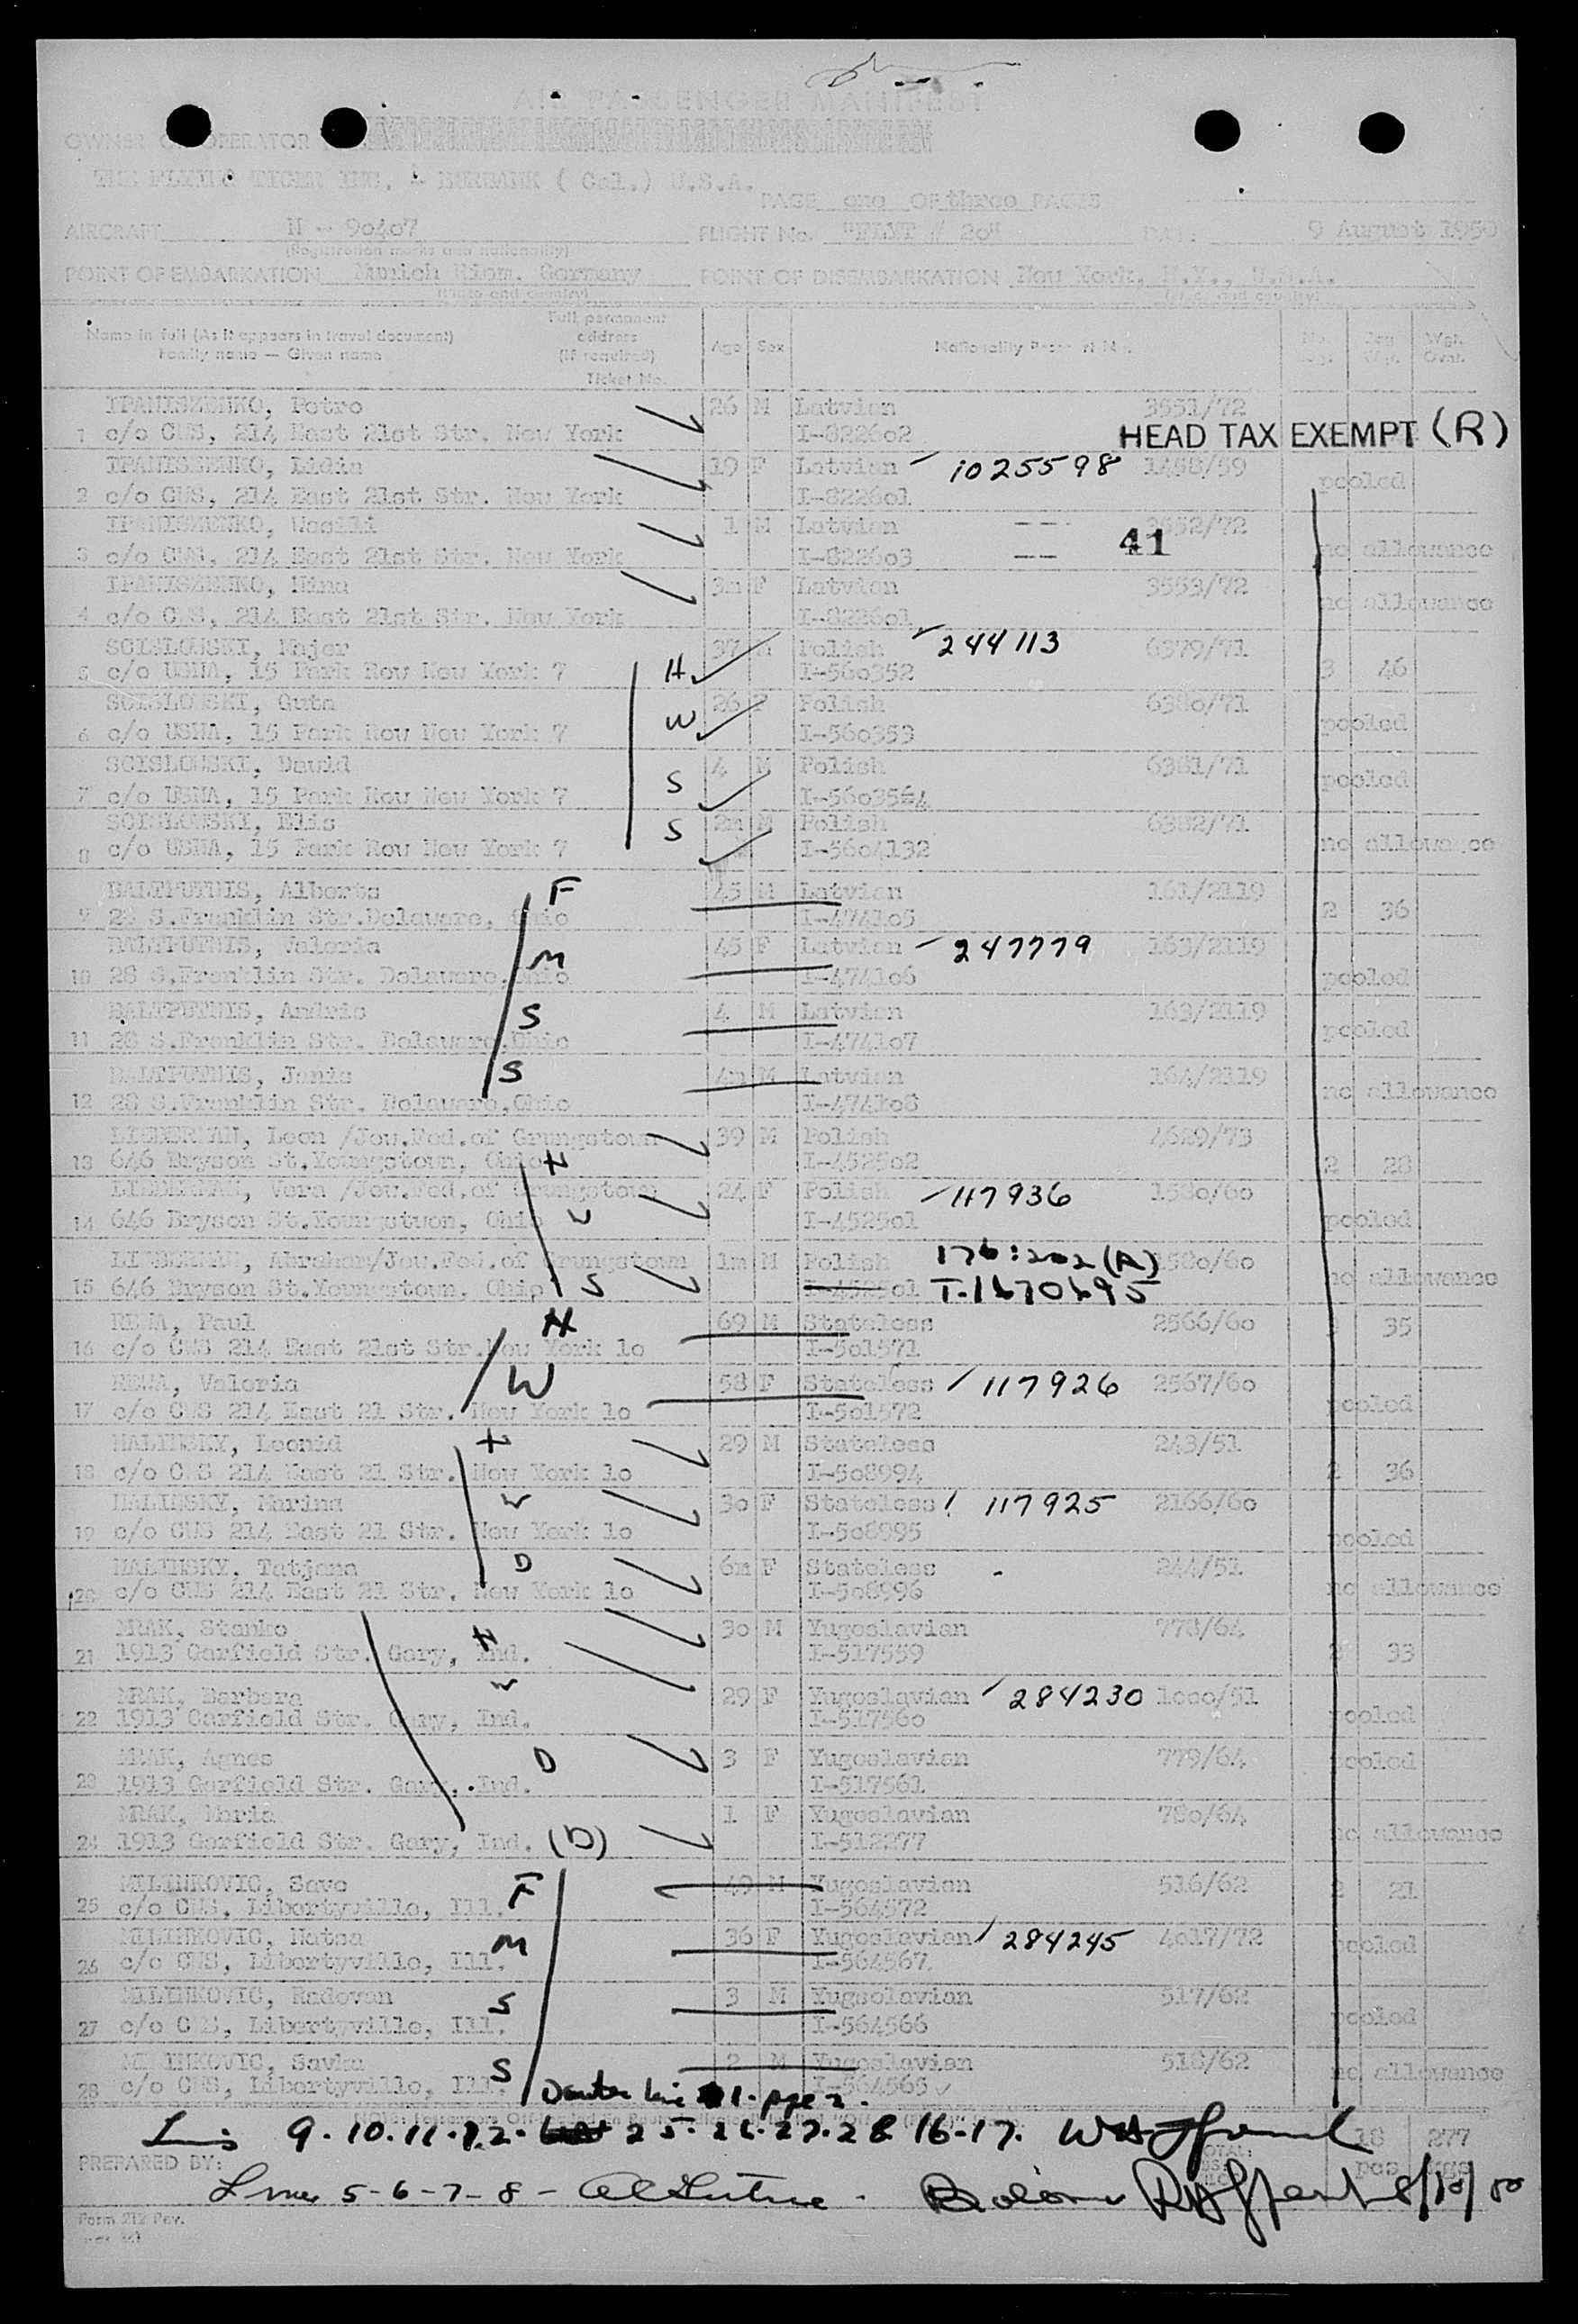 AIR PASSENGER MANIFEST
OWNER OR OPERATOR
THE FLYING TIGER INC. - BURBANK ( Cal.) U.S.A.
PAGE one OF three PAGES
AIRCRAFT N - 90407 FLIGHT No. "FLYT # 20" DATE: 9 August 1950
(Registration marks and nationality)
POINT OF EMBARKATION Munich Riem. Germany POINT OF DISEMBARKATION New York, N.Y., U.S.A.
(Place and country) (Place and country)
Name in full (As it appears in travel document) Family name — Given name Full permanent address (If required) Ticket No. Age Sex Nationality Passport No. Wgt. Ovar.
IPANISZENKO, Petro 26 M Latvian 3551/72
1 c/o CWS, 214 East 21st Str. New York I-822602 HEAD TAX EXEMPT (R)
IPANISZENKO, Lidia 19 F Latvian 1025598 1458/59
2 c/o CWS, 214 East 21st Str. New York I-822601 pooled
IPANISZENKO, Wasili 1 M Latvian 3552/72
3 c/o CWS, 214 East 21st Str. New York I-822603 41 no allowance
IPANISZENKO, Nina 3m F Latvian 3553/72
4 c/o CWS, 214 East 21st Str. New York I-822601 no allowance
SCISLOWSKI, Majer 37 M Polish 244113 6379/71
5 c/o USNA, 15 Park Row New York 7 H I-560352 3 46
SCISLOWSKI, Guta 26 F Polish 6380/71
6 c/o USNA, 15 Park Row New York 7 W I-560353 pooled
SCISLOWSKI, David 4 M Polish 6381/71
7 c/o USNA, 15 Park Row New York 7 S I-560354 pooled
SCISLOWSKI, Elis 2m M Polish 6382/71
8 c/o USNA, 15 Park Row New York 7 S I-5604132 no allowance
BALTPUTNIS, Alberts F 45 M Latvian 161/2119
9 28 S.Franklin Str.Delaware, Ohio I-474105 2 36
BALTPUTNIS, Valeria 45 F Latvian 247779 163/2119
10 28 S.Franklin Str. Delaware,Ohio M I-474106 pooled
BALTPUTNIS, Andris S 4 M Latvian 163/2119
11 28 S.Franklin Str. Delaware,Ohio I-474107 pooled
BALTPUTNIS, Janis S 4m M Latvian 164/2119
12 28 S.Franklin Str. Delaware,Ohio I-474108 no allowance
LIEBERMAN, Leon /Jew.Fed.of Grungstown 39 M Polish 4689/73
13 646 Bryson St.Youngstown, Ohio H I-452502 2 28
LIEBERMAN, Vera /Jew.Fed.of Grungstown 24 F Polish 117936 1580/60
14 646 Bryson St.Youngstwon, Ohio W I-452501 pooled
LIEBERMAN, Abraham/Jew.Fed.of Grungstown 1m M Polish 176:202(A) 1580/60
15 646 Bryson St.Youngstown. Ohio S I-452501 T-1670695 no allowance
REWA, Paul H 69 M Stateless 2566/60
16 c/o CWS 214 East 21st Str.New York 10 I-501571 3 35
REWA, Valeria W 58 F Stateless 117926 2567/60
17 c/o CWS 214 East 21 Str. New York 10 I-501572 pooled
HALINSKY, Leonid H 29 M Stateless 243/51
18 c/o CWS 214 East 21 Str. New York 10 I-508994 2 36
HALINSKY, Marina W 30 F Stateless 117925 2166/60
19 c/o CWS 214 East 21 Str. New York 10 I-508995 pooled
HALINSKY, Tatjana D 6m F Stateless 244/51
20 c/o CWS 214 East 21 Str. New York 10 I-508996 no allowance
MRAK, Stanko H 30 M Yugoslavian 778/64
21 1913 Garfield Str. Gary, Ind. I-517559 2 33
MRAK, Barbara W 29 F Yugoslavian 284230 1000/51
22 1913 Garfield Str. Gary, Ind. I-517560 pooled
MRAK, Agnes D 3 F Yugoslavian 779/64
23 1913 Garfield Str. Gary, Ind. I-517561 pooled
MRAK, Maria 1 F Yugoslavian 780/64
24 1913 Garfield Str. Gary, Ind. (D) I-512277 no allowance
MILINKOVIC, Savo F 49 M Yugoslavian 516/62
25 c/o CWS, Libertyville, Ill. I-564572 2 21
MILINKOVIC, Natsa M 36 F Yugoslavian 284245 4017/72
26 c/o CWS, Libertyville, Ill. I-564567 pooled
MILINKOVIC, Radovan S 3 M Yugsolavian 517/62
27 c/o CWS, Libertyville, Ill. I-564566 pooled
MILINKOVIC, Savka S 2 M Yugoslavian 518/62
28 c/o CWS, Libertyville, Ill. I-564565 no allowance
line 1 - page 2.
9. 10. 11. 12. 25. 26. 27. 28 16-17. 18 277
PREPARED BY: TOTAL: pcs kgs
Lines 5-6-7-8 - 8/10/50
Form 212 Rev.